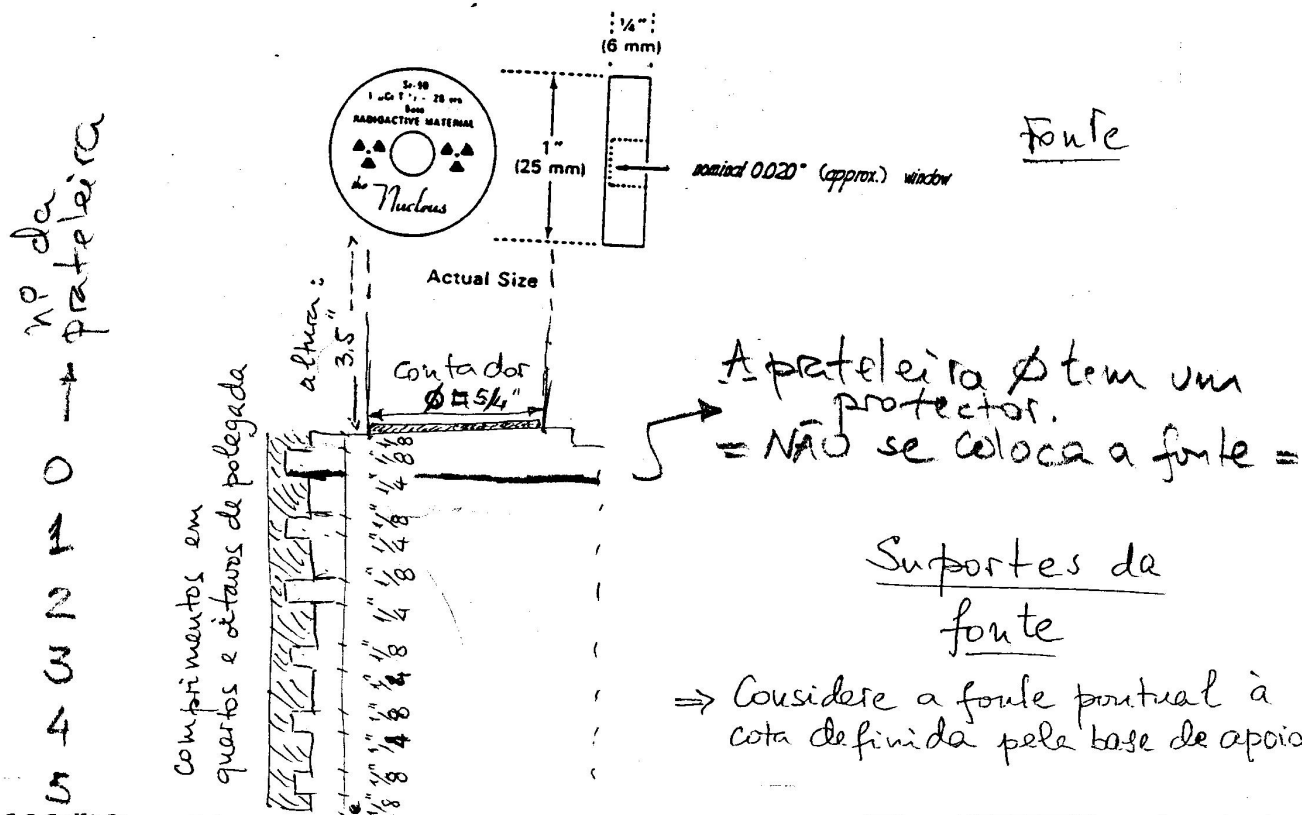 1/4"
(6 mm)
Sr-90
RADIOACTIVE MATERIAL
the Nucleus
1"
(25 mm)
nominal 0.020" (approx.) window
Fonte
Actual Size
nº da
prateleira
0 1 2 3 4 5
comprimentos em
quartos e oitavos de polegada
altura:
3.5"
contador
5/4"
A prateleira Ø tem um
protector.
= NÃO se coloca a fonte =
Suportes da
fonte
⇒ Considere a fonte pontual à
cota definida pela base de apoio